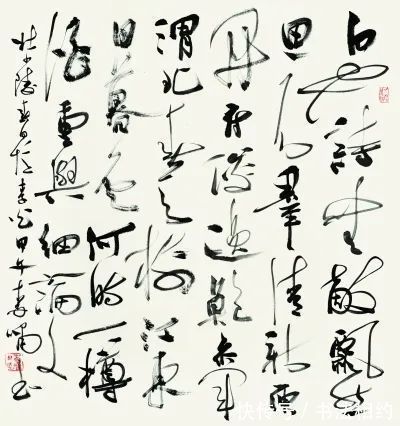 白也詩無敵飄然
思不群清新庾
開府俊逸鮑參軍
渭北春天樹江東
日暮雲何時一樽
酒重與細論文
杜少陵春日憶李白甲午春嘯書
快传号 / 书法相约